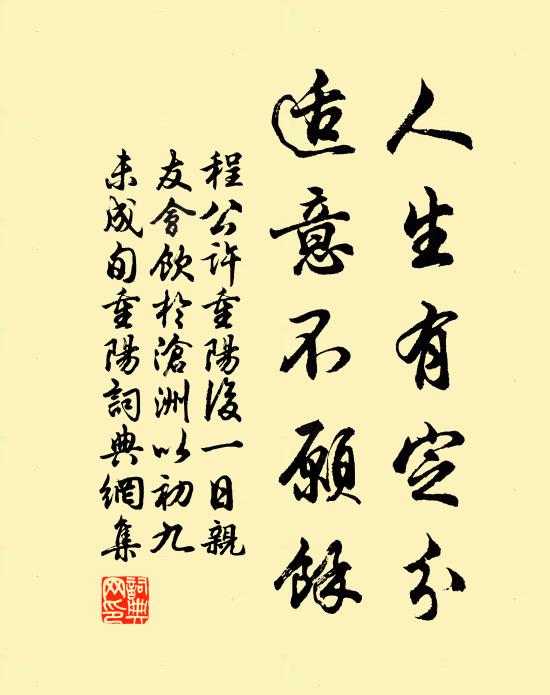 人生有定分
适意不願餘
程公許重陽後一日親
友會飲於滄洲以初九
未成旬重陽詞典網集
詞典網印